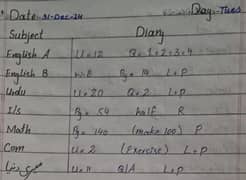 Date: 31-Dec-24 Day: Tues
Subject Diary
English A U=12 Q=1+2+3+4
English B W.B Pg= 19 L+P
Urdu U=20 Q=2 L+P
I/s Pg= 54 half R
Math Pg= 140 (Make 100) P
Com U=2 (Exercise) L+P
U=11 Q/A L+P